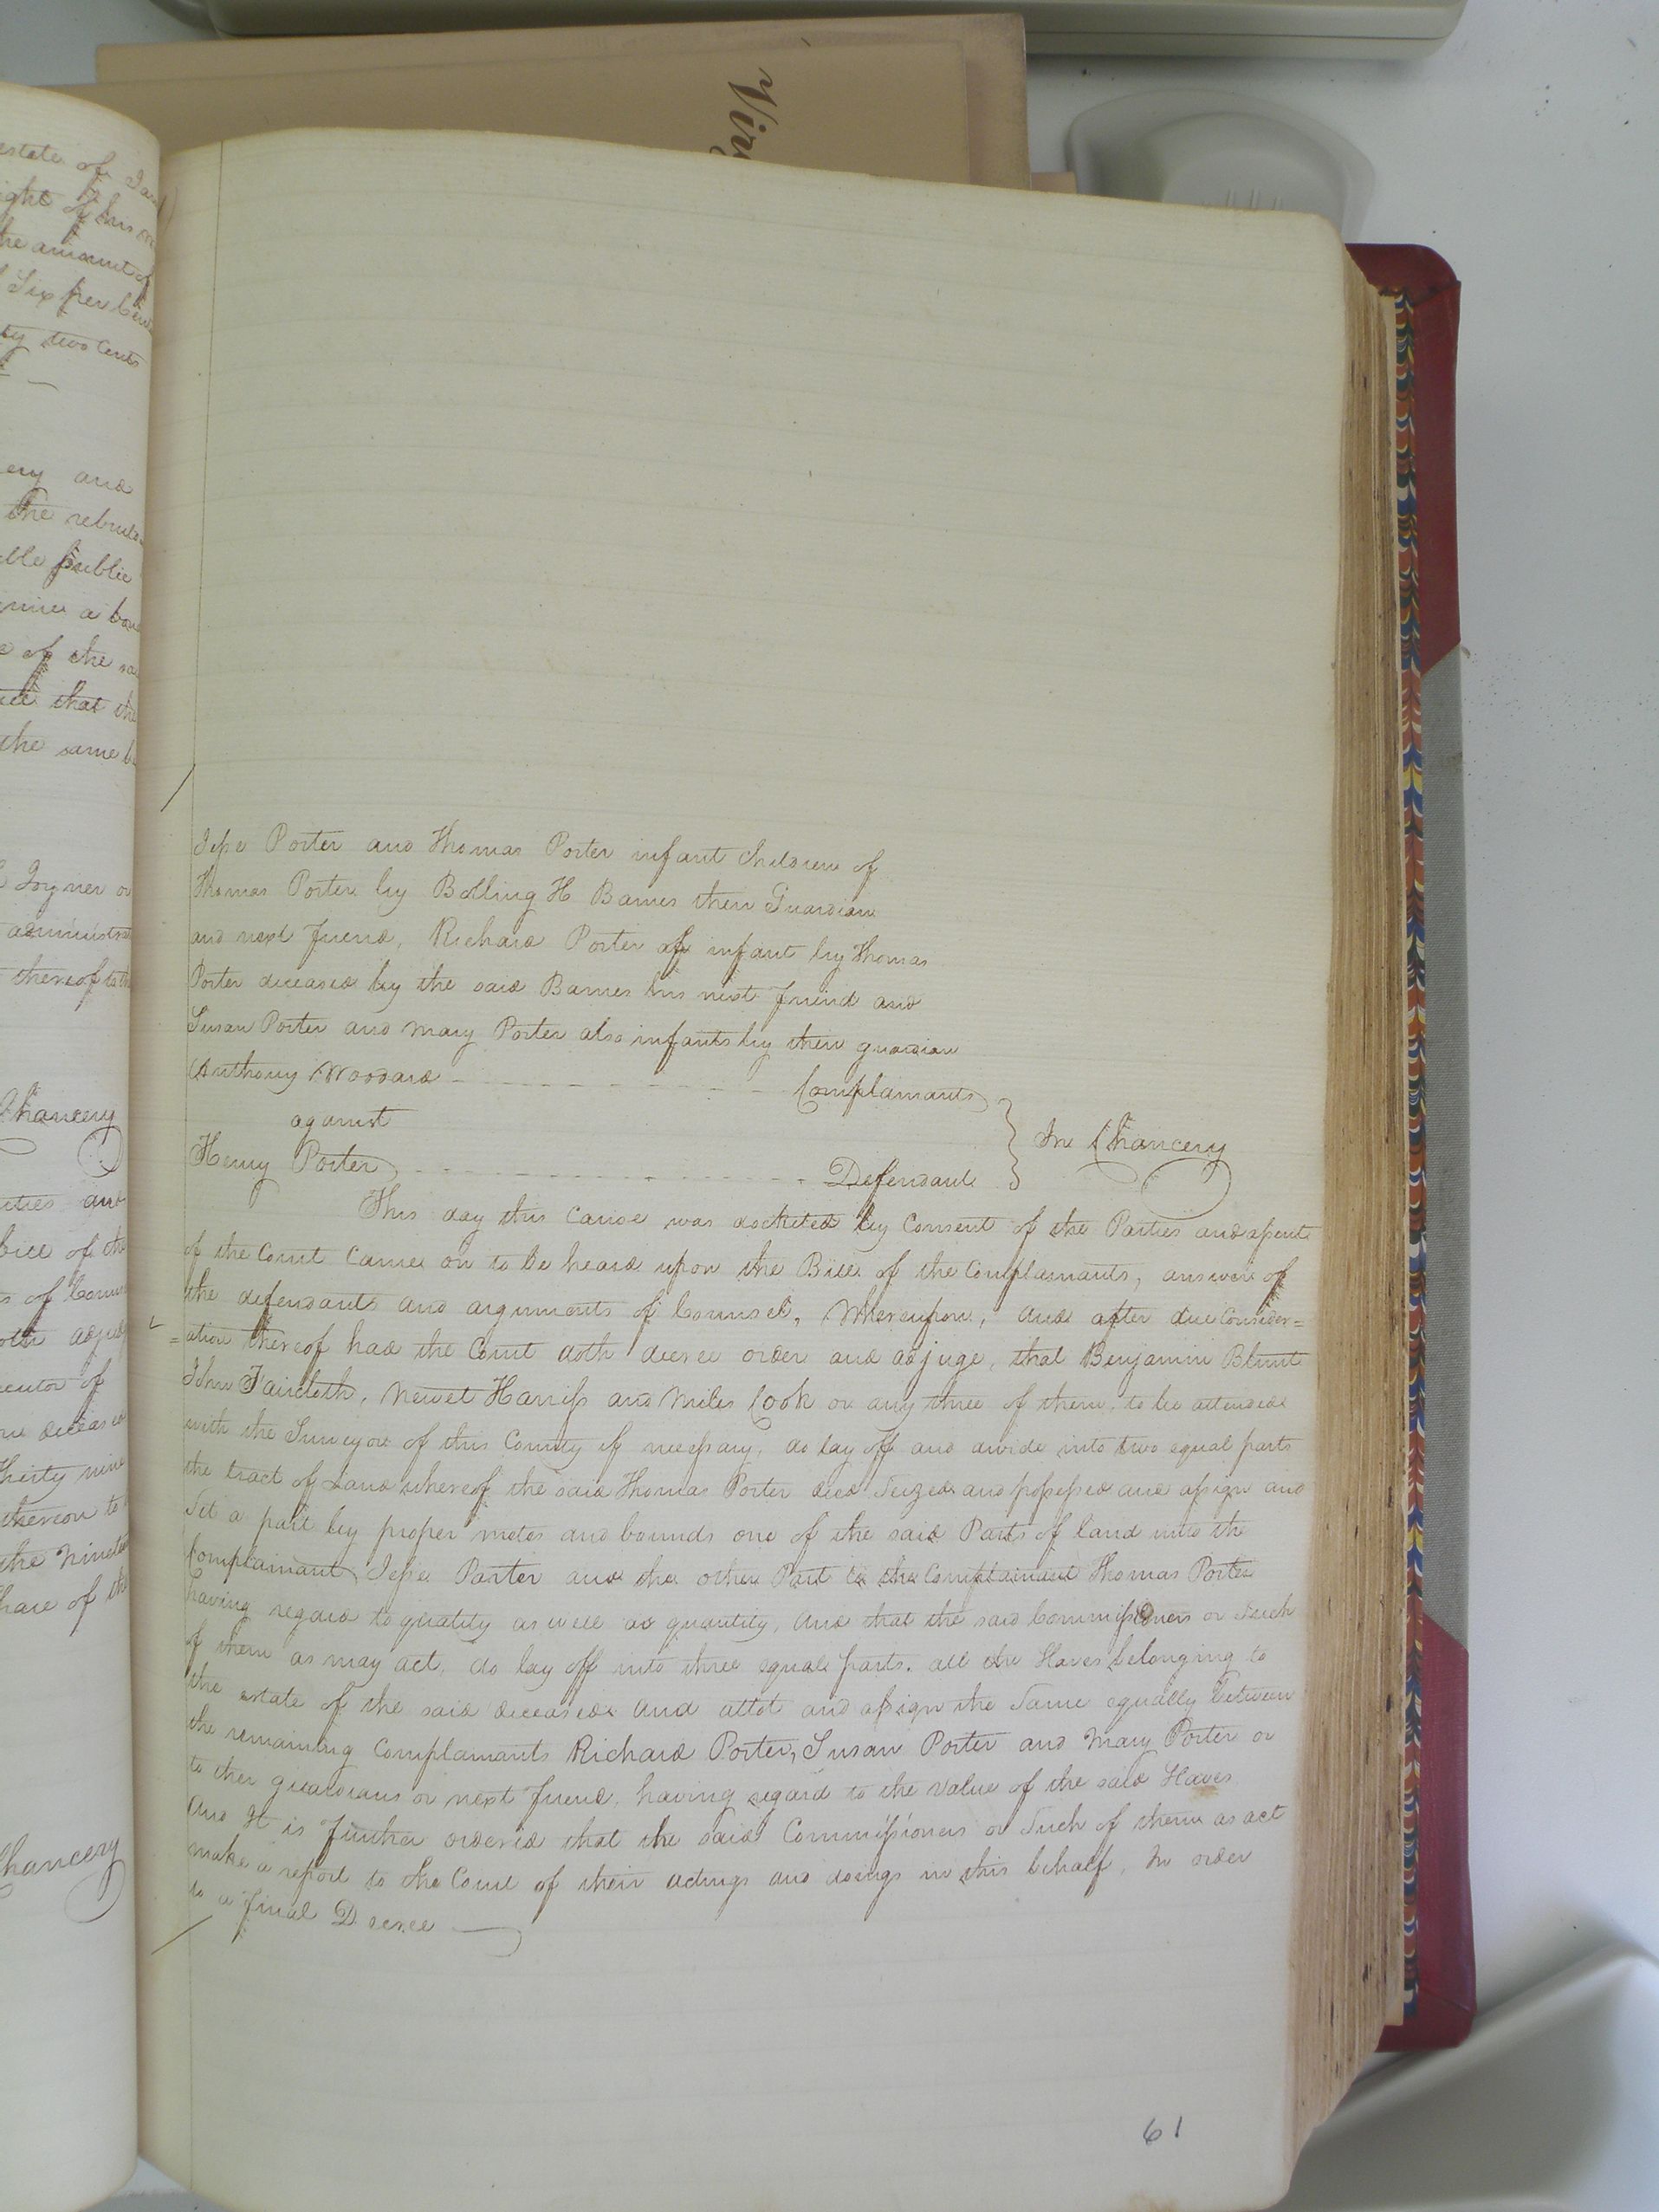 Vir
estate of
ight of his
the amount of
Six per Cent
ty two Cents
ery and
the
ble public
a
of the
that the
the same
Joyner
thereof to the
Chancery
and
of the
of
of
deceased
thirty nine
thereon to
the
share of the
Chancery
Jesse Porter and Thomas Porter infant Children of
Thomas Porter by Bolling H Barnes their Guardian
and next Friend, Richard Porter an infant by Thomas
Porter deceased by the said Barnes his next friend and
Susan Porter and Mary Porter also infants by their guardian
Anthony Woodard - - - - - - - - Complainants
against
In Chancery
Henry Porter - - - - - - - - - - Defendant
This day this Cause was docketed by Consent of the Parties and assent
of the Court Came on to be heard upon the Bill of the Complainants, answer of
the defendants and arguments of Counsel, Whereupon, and after due Consider=
=ation thereof had the Court doth decree order and adjuge, that Benjamin Blunt
John Faircloth, Newet Harriss and Miles Cook or any three of them, to be attended
with the Surveyor of this County if necessary, do lay off and divide into two equal parts
the tract of Land whereof the said Thomas Porter died Seized and possessed and assign and
Set a part by proper metes and bounds one of the said Parts of land unto the
Complainant Jesse Porter and the other Part to the Complainant Thomas Porter
having regard to quality as well as quantity, and that the said Commissioners or Such
of them as may act, do lay off into three equal parts. all the Slaves belonging to
the estate of the said deceased and allot and assign the Same equally between
the remaining Complainants Richard Porter, Susan Porter and Mary Porter or
to their guardians or next friend, having regard to the value of the said Slaves
And It is Further ordered that the said Commissioners or Such of them as act
make a report to the Court of their actings and doings in this behalf, In order
to a final Decree
61